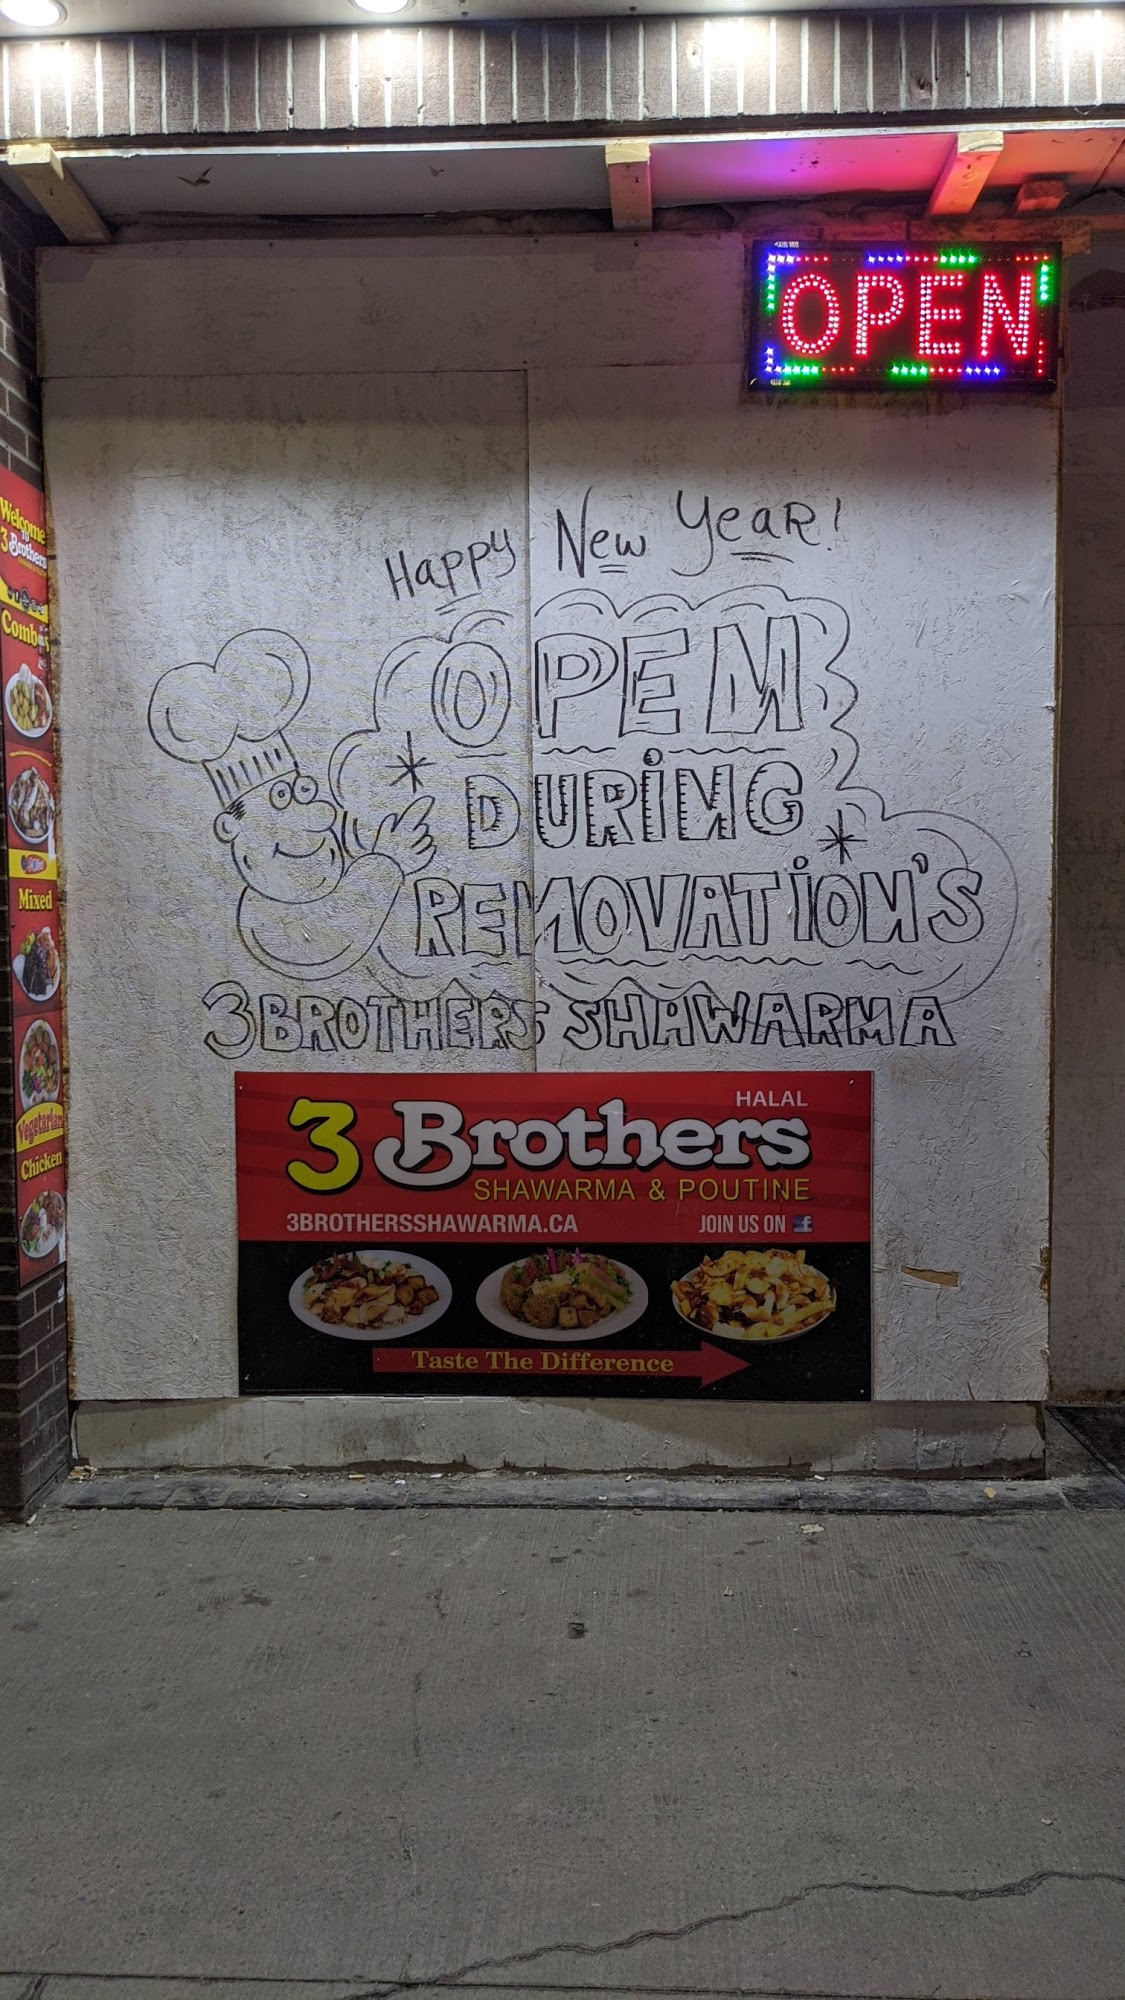 OPEN
Happy New Year!
OPEN
DURiNG
RENOVATiON'S
3 BROTHERS SHAWARMA
HALAL
3 Brothers
SHAWARMA & POUTINE
3BROTHERSSHAWARMA.CA JOIN US ON f
Taste The Difference
Welcome
To
3 Brothers
Mixed
Vegetarian
Chicken